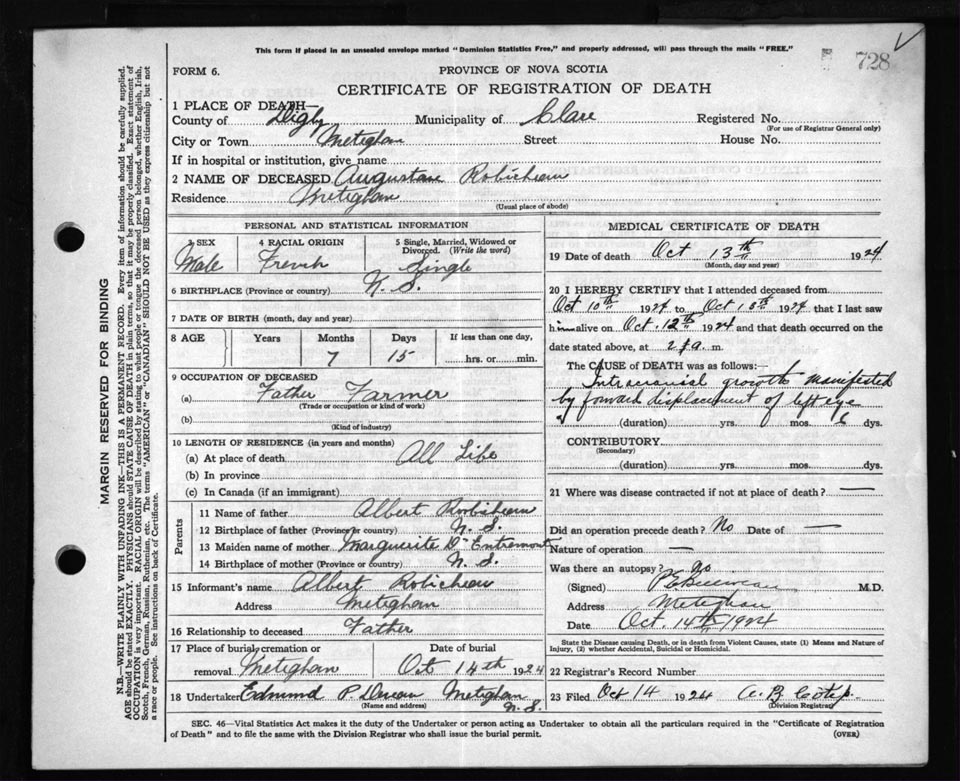 This form if placed in an unsealed envelope marked "Dominion Statistics Free," and properly addressed, will pass through the mails "FREE."
728
FORM 6.
PROVINCE OF NOVA SCOTIA
CERTIFICATE OF REGISTRATION OF DEATH
1 PLACE OF DEATH—
County of Digby Municipality of Clare Registered No.
(For use of Registrar General only)
City or Town Meteghan Street House No.
If in hospital or institution, give name
2 NAME OF DECEASED Augustave Robicheau
Residence Meteghan
(Usual place of abode)
PERSONAL AND STATISTICAL INFORMATION
3 SEX 4 RACIAL ORIGIN 5 Single, Married, Widowed or Divorced. (Write the word)
Male French Single
6 BIRTHPLACE (Province or country) N. S.
7 DATE OF BIRTH (month, day and year)
8 AGE Years Months Days If less than one day,
7 15 hrs. or min.
9 OCCUPATION OF DECEASED
(a) Father Farmer
(Trade or occupation or kind of work)
(b)
(Kind of industry)
10 LENGTH OF RESIDENCE (in years and months)
(a) At place of death All Life
(b) In province
(c) In Canada (if an immigrant)
Parents
11 Name of father Albert Robicheau
12 Birthplace of father (Province or country) N. S.
13 Maiden name of mother Marguerite D'Entremont
14 Birthplace of mother (Province or country) N. S.
15 Informant's name Albert Robicheau
Address Meteghan
16 Relationship to deceased Father
17 Place of burial, cremation or removal Meteghan
Date of burial Oct 14th 1924
18 Undertaker Edmund P. Meteghan N. S.
(Name and address)
MEDICAL CERTIFICATE OF DEATH
19 Date of death Oct 13th 1924
(Month, day and year)
20 I HEREBY CERTIFY that I attended deceased from
Oct 10th 1924 to Oct 13th 1924 that I last saw
him alive on Oct. 12th 1924 and that death occurred on the
date stated above, at a. m.
The CAUSE of DEATH was as follows:—
Intracranial growth manifested
by forward displacement of left eye
(duration) yrs. mos. 6 dys.
CONTRIBUTORY
(Secondary)
(duration) yrs. mos. dys.
21 Where was disease contracted if not at place of death? —
Did an operation precede death? No Date of —
Nature of operation —
Was there an autopsy? No
(Signed) M.D.
Address Meteghan
Date Oct. 14th 1924
State the Disease causing Death, or in death from Violent Causes, state (1) Means and Nature of
Injury, (2) whether Accidental, Suicidal or Homicidal.
22 Registrar's Record Number
23 Filed Oct 14 1924 A. B.
(Division Registrar)
SEC. 46—Vital Statistics Act makes it the duty of the Undertaker or person acting as Undertaker to obtain all the particulars required in the "Certificate of Registration
of Death" and to file the same with the Division Registrar who shall issue the burial permit. (OVER)
MARGIN RESERVED FOR BINDING
N.B.—WRITE PLAINLY WITH UNFADING INK—THIS IS A PERMANENT RECORD. Every item of information should be carefully supplied.
AGE should be stated EXACTLY. PHYSICIANS should STATE CAUSE OF DEATH in plain terms, so that it may be properly classified. Exact statement of
OCCUPATION is very important. RACIAL ORIGIN will be described by stating to what people or tongue the deceased person belonged, whether English, Irish,
Scotch, French, German, Russian, Ruthenian, etc. The terms "AMERICAN" or "CANADIAN" SHOULD NOT BE USED as they express citizenship but not
a race or people. See instructions on back of Certificate.